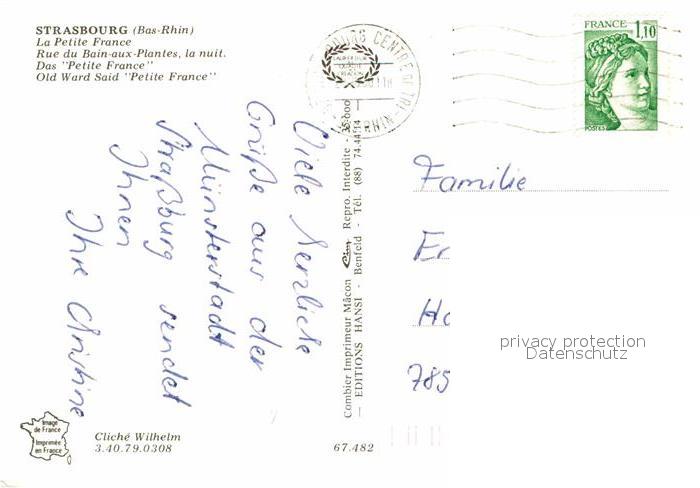 STRASBOURG (Bas-Rhin)
La Petite France
Rue du Bain-aux-Plantes, la nuit.
Das "Petite France"
Old Ward Said "Petite France"
Viele herzliche
Grüße aus der
Münsterstadt
Straßburg sendet
Ihnen
Ihre Christine
Image
de France
Imprimée
en France
Cliché Wilhelm
3.40.79.0308
67.482
Combier Imprimeur Mâcon Repro. Interdite - 35.000
— EDITIONS HANSI - Benfeld - Tél. (88) 74.44.14
CENTRE DE TRI
RHIN
FRANCE
1,10
POSTES
Familie
Er
Ho
785
privacy protection
Datenschutz